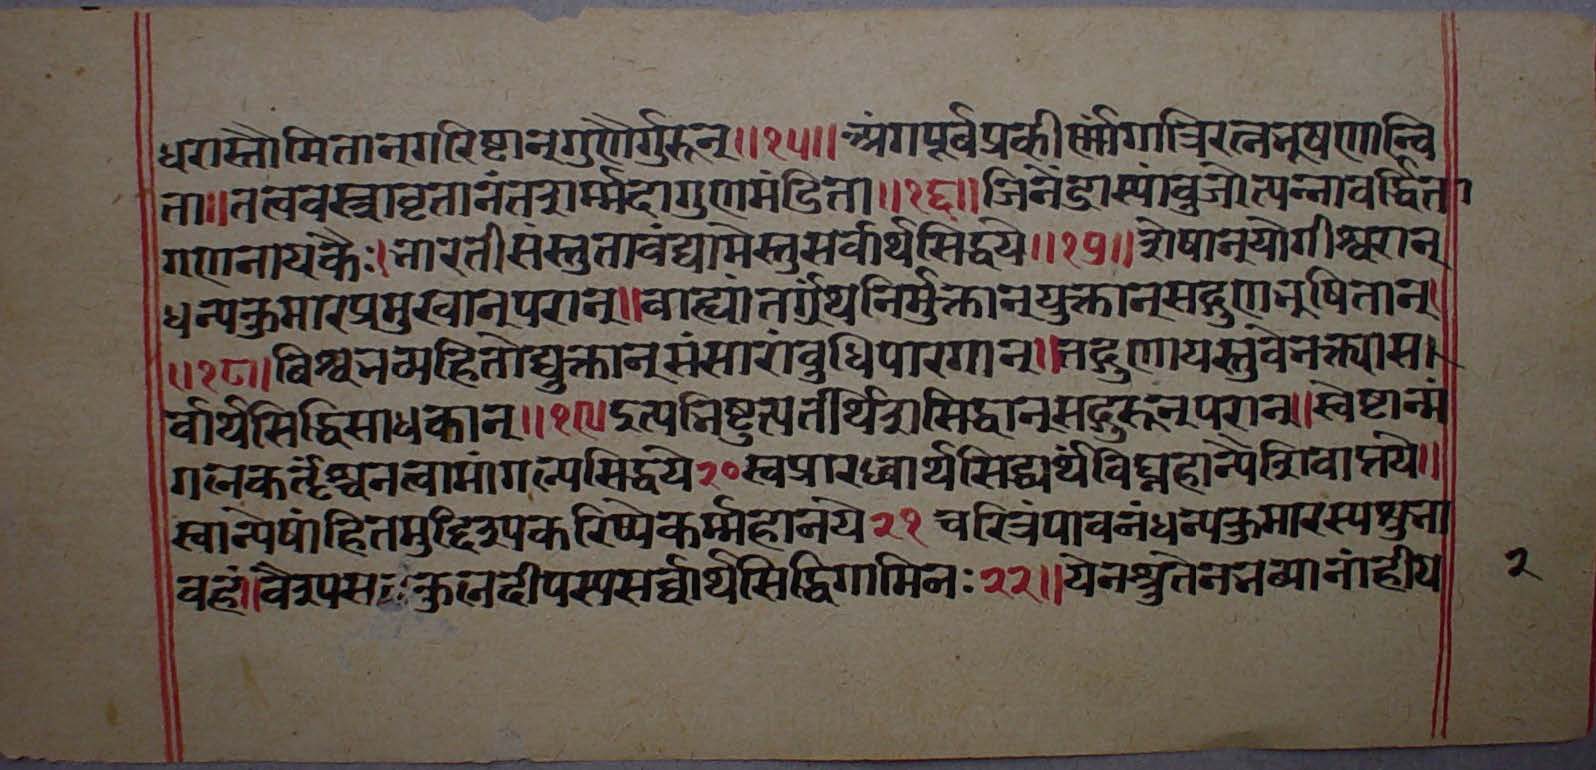 धरास्तौमितान्गरिष्टान्गुणैर्गुरून्॥१५॥अंगपूर्वप्रकीर्णांगात्रिरत्नभूषणान्वि
ता॥तत्ववस्त्रावृतानंतशर्म्मदागुणमंडिता॥१६॥जिनेंद्रास्यांवुजोत्पन्नावर्द्धिता
गणनायकैः।भारतीसंस्तुतावंद्यामेस्तुसर्वार्थसिद्धये॥१७॥शेषान्योगीश्वरान्
धन्यकुमारप्रमुखान्परान्॥वाह्यांतर्ग्रंथनिर्मुक्तान्युक्तान्सद्गुणभूषितान्
॥१८॥विश्वभव्यहितोद्युक्तान्संसारांवुधिपारगान्॥तद्गुणायस्तुवेभक्त्यास
र्वार्थसिद्धिसाधकान्॥१९॥इत्यभिष्टुत्यतीर्थेशसिद्धान्सद्गुरून्परान्॥स्वेष्टान्मं
गलकर्तॄंश्चनत्वामांगल्यसिद्धये२०स्वप्रारध्वार्थसिद्ध्यर्थंविघ्नहान्यैशिवाप्तये॥
स्वान्येषांहितमुद्दिश्यकरिष्येकर्म्महानये२१चरित्रंपावनंधन्यकुमारस्यशुभा
वहं॥वैश्यसकुलदीपस्यसर्व्वार्थसिद्धिगामिनः२२॥येनश्रुतेनभव्यानांहीय
२